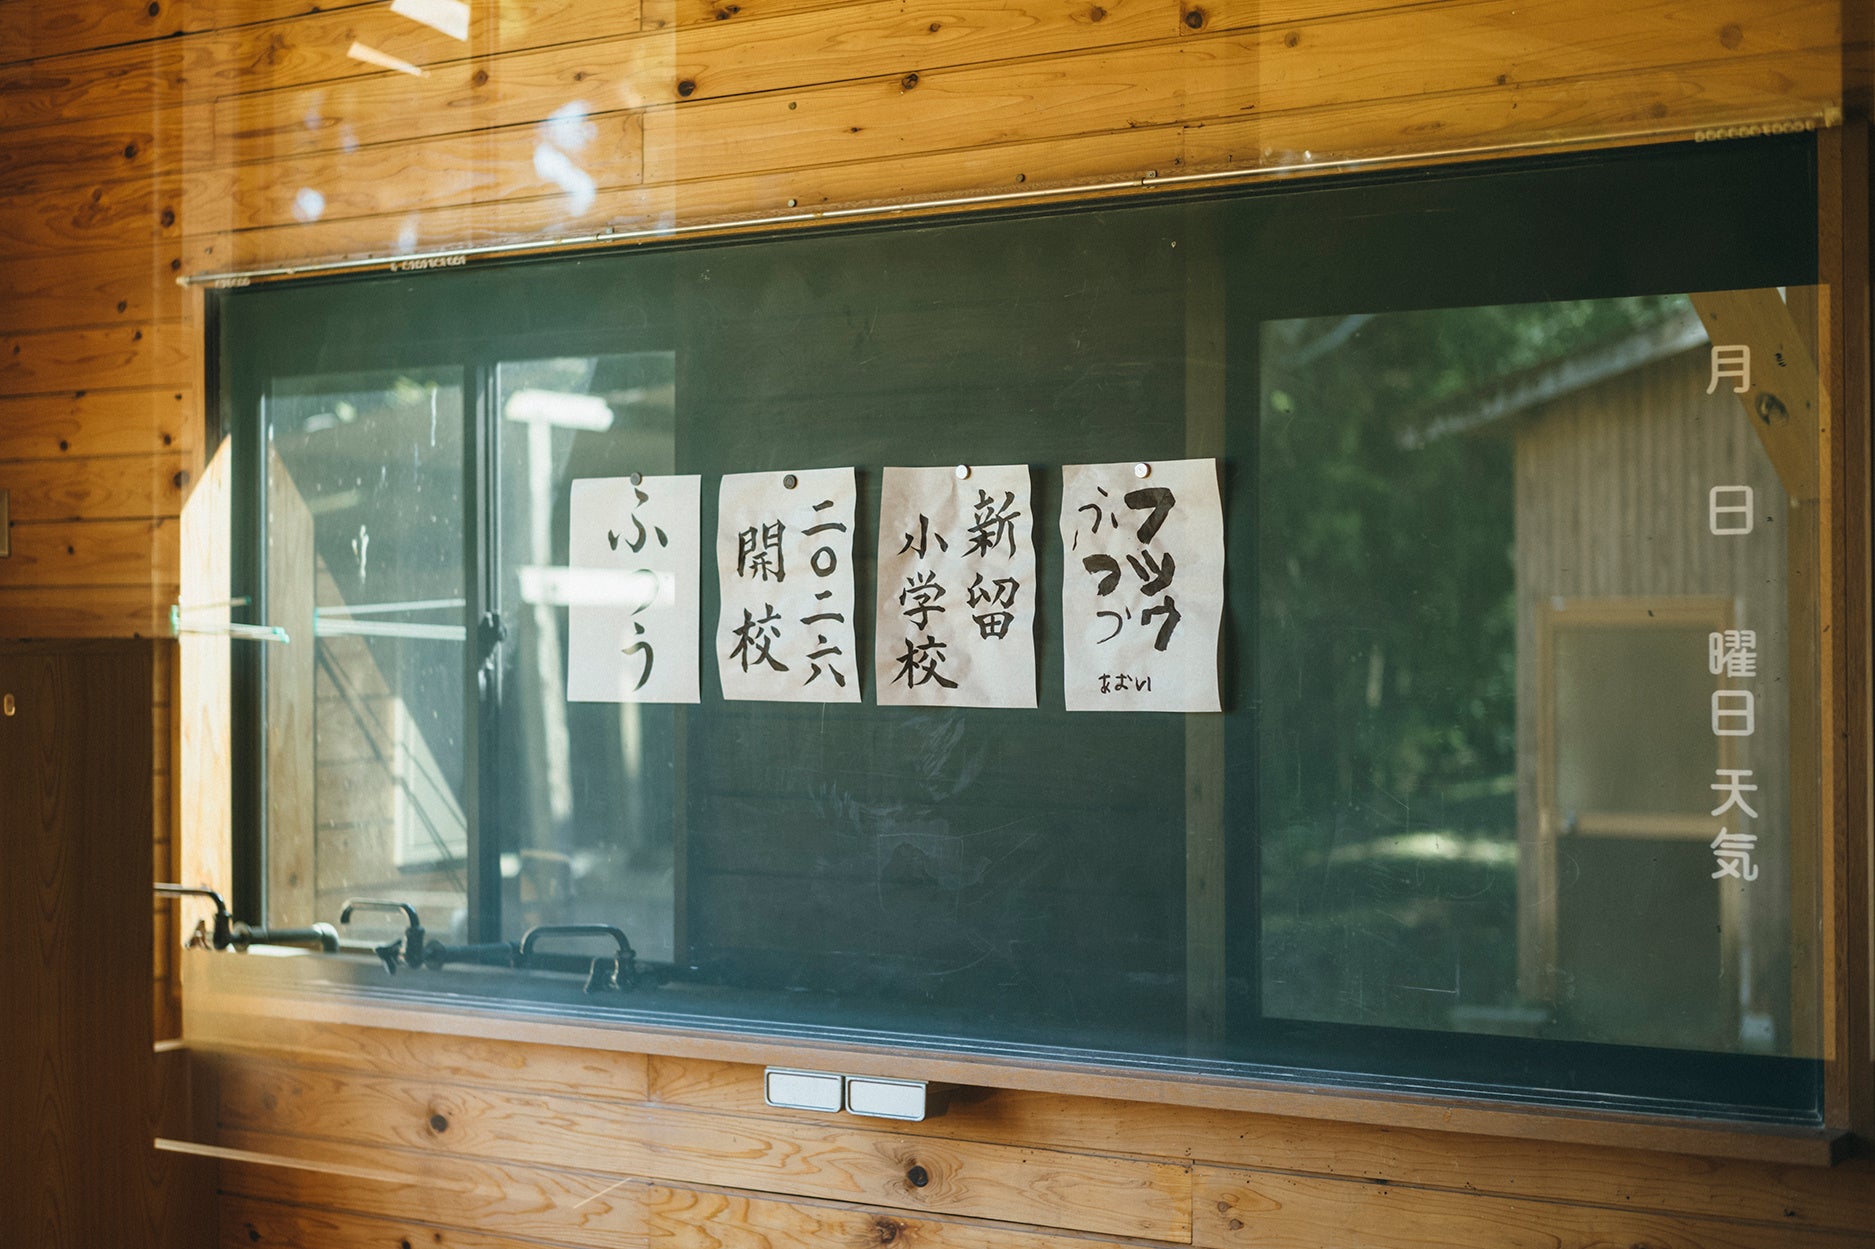 フツウ
ふつう
あおい
新留
小学校
二〇二六
開校
ふつう
月
日
曜日
天気